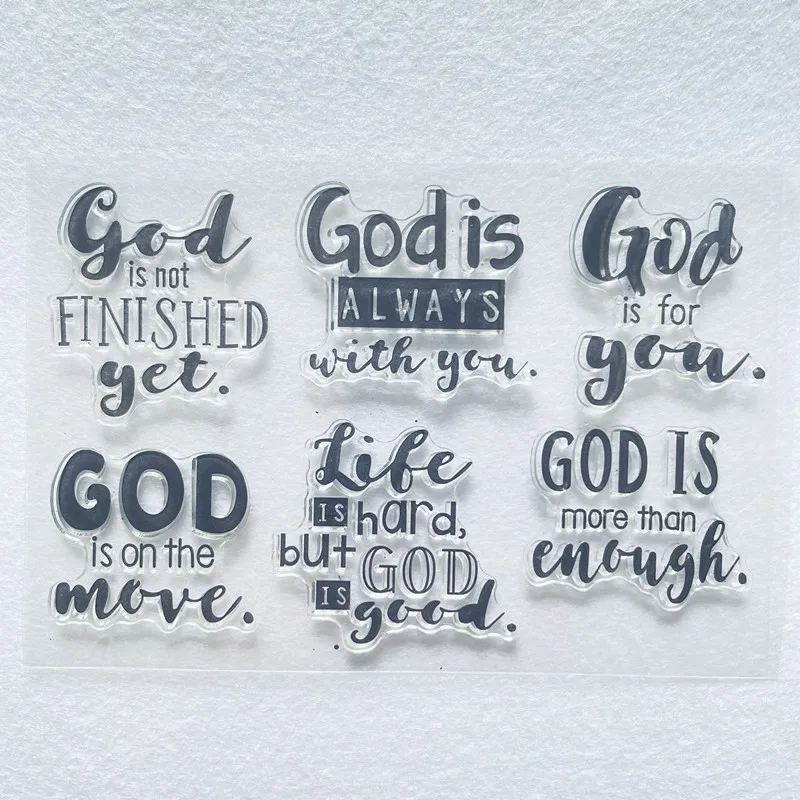 God
is not
FINISHED
yet.
God is
ALWAYS
with you.
God
is for
you.
GOD
is on the
move.
Life
IS hard,
but GOD
IS good.
GOD IS
more than
enough.